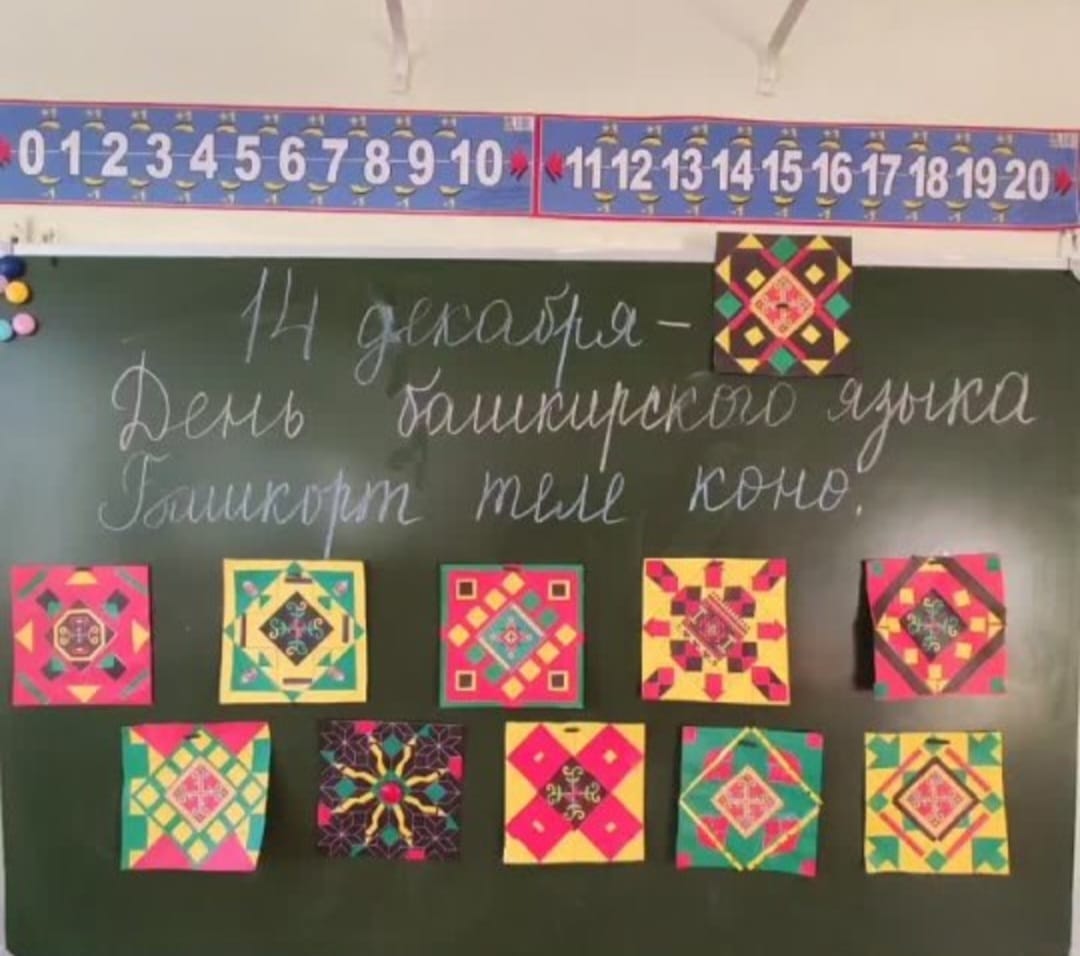 0 1 2 3 4 5 6 7 8 9 10 11 12 13 14 15 16 17 18 19 20
14 декабря –
День башкирского языка
Башкорт теле коно.